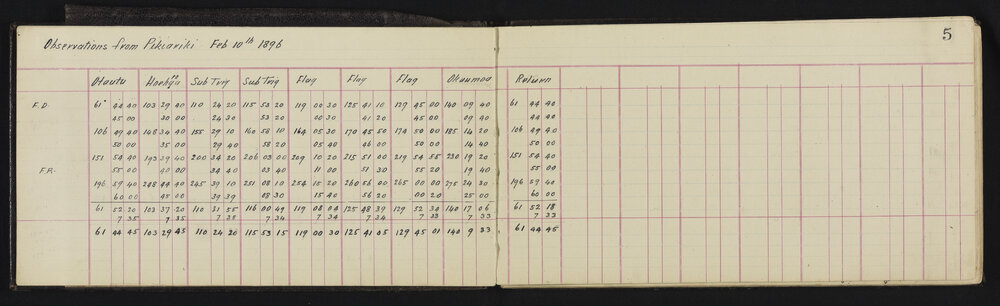 5
Observations from Pikiariki Feb 10th 1896
Otautu Hoehga Sub Trig Sub Trig Flag Flag Flag Okaumoa Return
F.D. 61° 44 40 103 29 40 110 24 20 115 53 20 119 00 30 125 41 10 129 45 00 140 09 40 61 44 40
45 00 30 00 24 30 53 20 00 30 41 20 45 00 09 40 44 40
106 49 40 148 34 40 155 29 10 160 58 10 164 05 30 170 45 50 174 50 00 185 14 20 106 49 40
50 00 35 00 29 40 58 20 05 40 46 00 50 00 14 40 50 00
151 54 40 193 39 40 200 34 20 206 03 00 209 10 20 215 51 00 219 54 55 230 19 20 151 54 40
F.R. 55 00 40 00 34 40 03 40 11 00 51 30 55 20 19 40 55 00
196 59 40 248 44 40 245 39 10 251 08 10 254 15 20 260 56 00 265 00 00 275 24 30 196 59 40
60 00 45 00 39 39 08 30 15 40 56 20 00 20 25 00 60 00
61 52 20 103 37 20 110 31 55 116 00 49 119 08 04 125 48 39 129 52 34 140 17 06 61 52 18
7 35 7 35 7 35 7 34 7 34 7 34 7 33 7 33 7 33
61 44 45 103 29 45 110 24 20 115 53 15 119 00 30 125 41 05 129 45 01 140 9 33 61 44 45